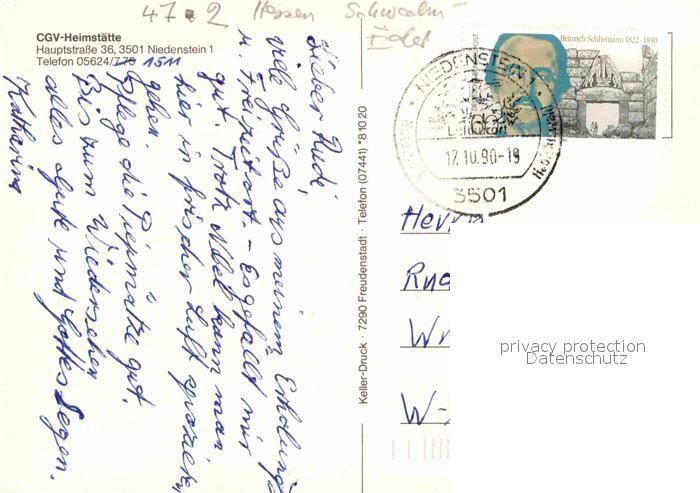 47-2 Hessen Schwalm-
Eder
CGV-Heimstätte
Hauptstraße 36, 3501 Niedenstein 1
Telefon 05624/775 1511
Lieber Rudi,
viele Grüße aus meinem Erholungs
u. Freizeitort. - Es gefällt mir
gut. Trotz Nebel kann man
hier in frischer Luft spazieren
gehen.
Pflege die Piepmätze gut.
Bis zum Wiedersehen
alles Gute und Gottes Segen.
Katharina
Keller-Druck · 7290 Freudenstadt · Telefon (07441) *81020
POST
Heinrich Schliemann 1822-1890
60
NIEDENSTEIN
Luftkurort
17.10.90-19
3501
Herrn
Rud
W
W-
privacy protection
Datenschutz